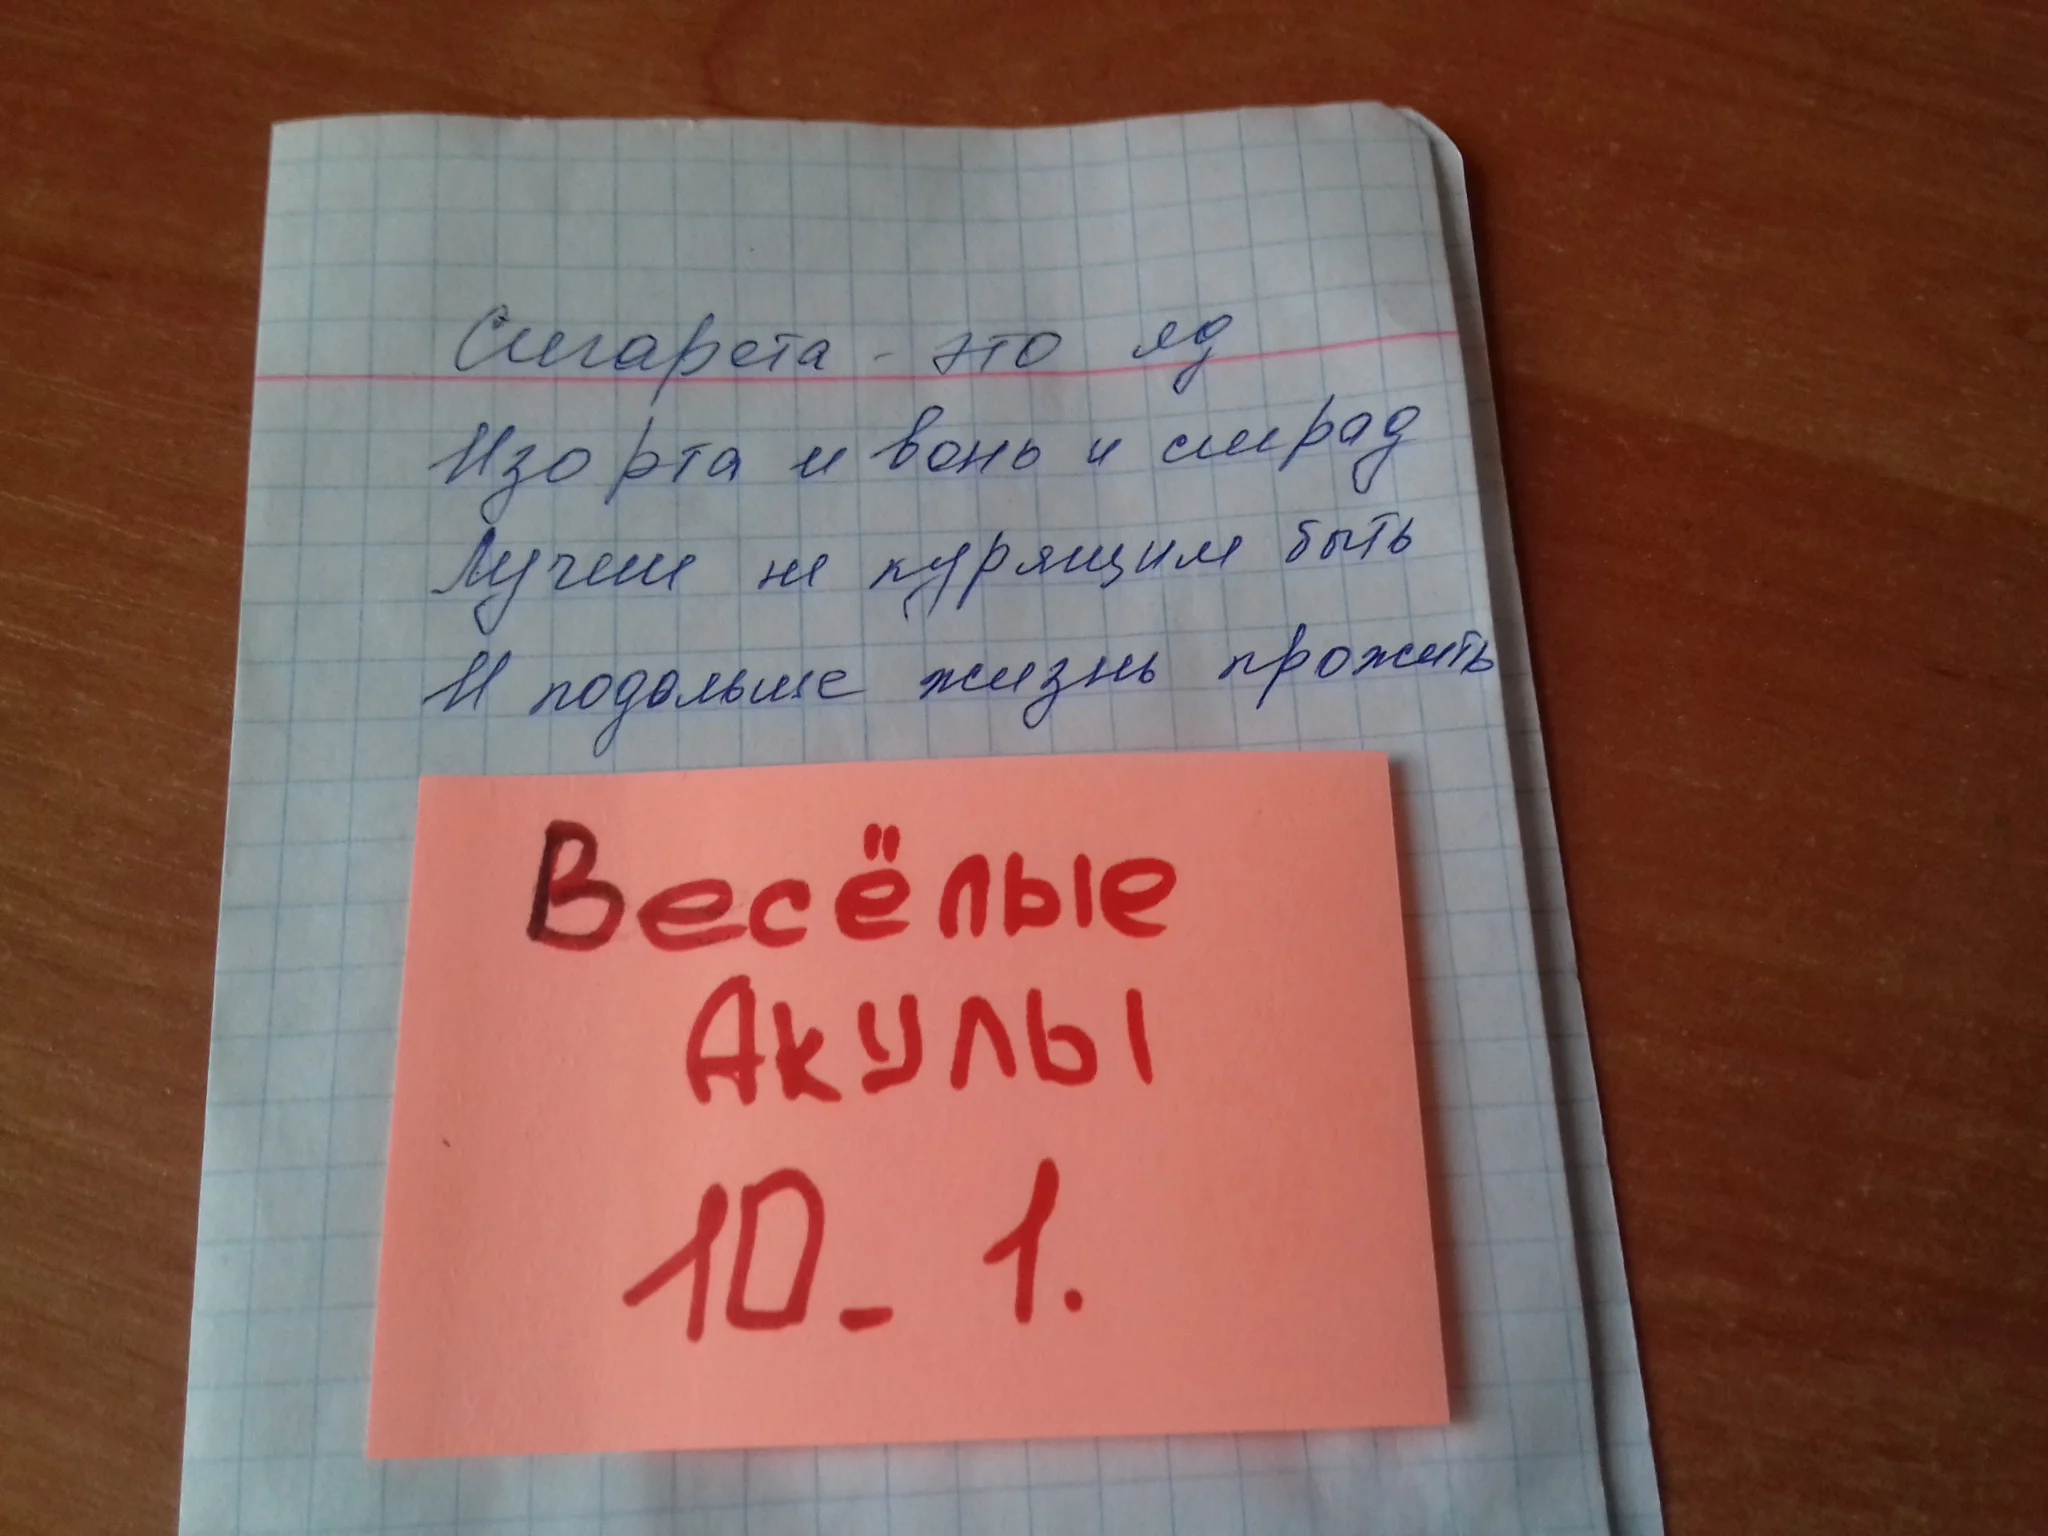 Сигарета - это яд
Изо рта и вонь и смрад
Лучше не курящим быть
И подольше жизнь прожить
Весёлые
Акулы
10- 1.